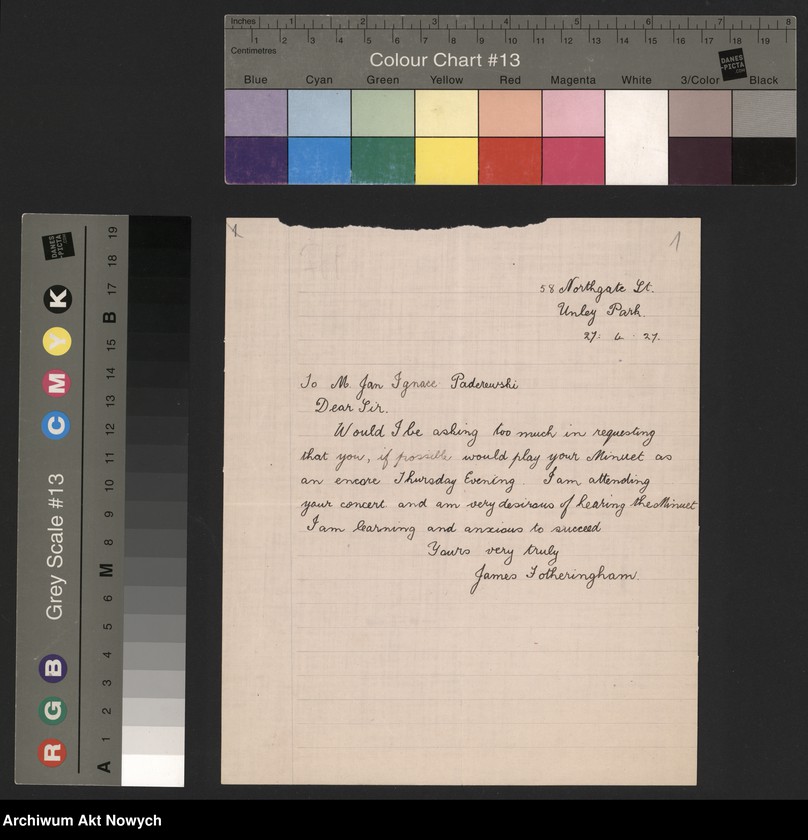 Inches 1 2 3 4 5 6 7 8
1 2 3 4 5 6 7 8 9 10 11 12 13 14 15 16 17 18 19
Centimetres
Colour Chart #13
DANES
-PICTA
.COM
Blue Cyan Green Yellow Red Magenta White 3/Color Black
DANES
-PICTA
.COM
R G B Grey Scale #13 C M Y K
A 1 2 3 4 5 6 M 8 9 10 11 12 13 14 15 B 17 18 19
1
1
58 Northgate St.
Unley Park.
27. 4. 27.
To M. Jan Ignace Paderewski
Dear Sir.
Would I be asking too much in requesting
that you, if possible would play your Minuet as
an encore Thursday Evening. I am attending
your concert and am very desirous of hearing the Minuet
I am learning and anxious to succeed
Yours very truly
James Fotheringham.
Archiwum Akt Nowych